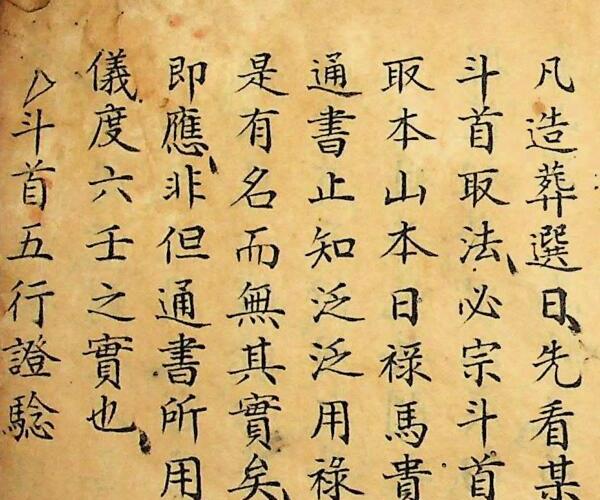 凡造葬選日先看某
斗首取法必宗斗首
取本山本日祿馬貴
通書止知泛泛用祿
是有名而無其實矣
即應非但通書所用
儀度六壬之實也
斗首五行證驗